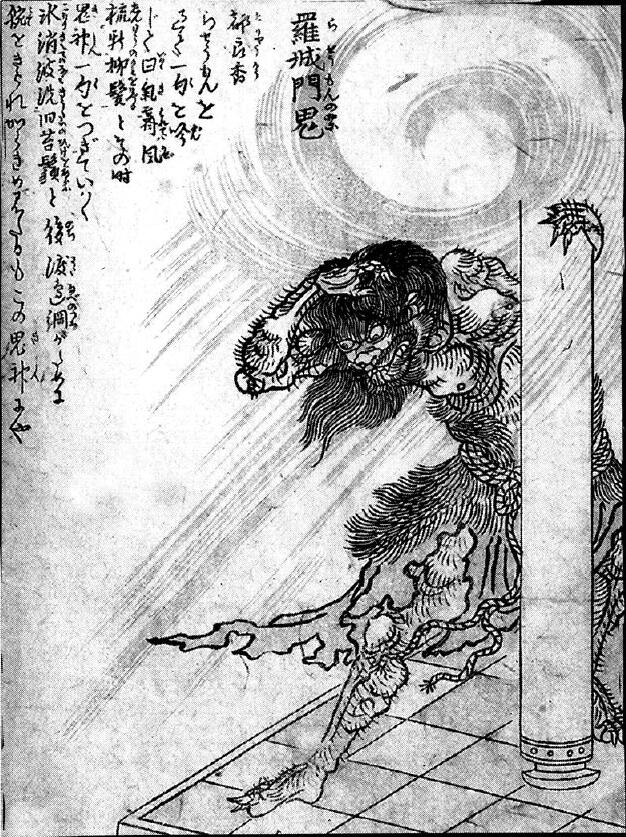 羅城門鬼
都良香
らせうもんを
過て一句を吟
じて曰気霽風
梳新柳髪とその時
鬼神一句をつぎていはく
氷消波洗旧苔鬚と後渡辺綱がために
腕をきられからきめ見たるもこの鬼神にや